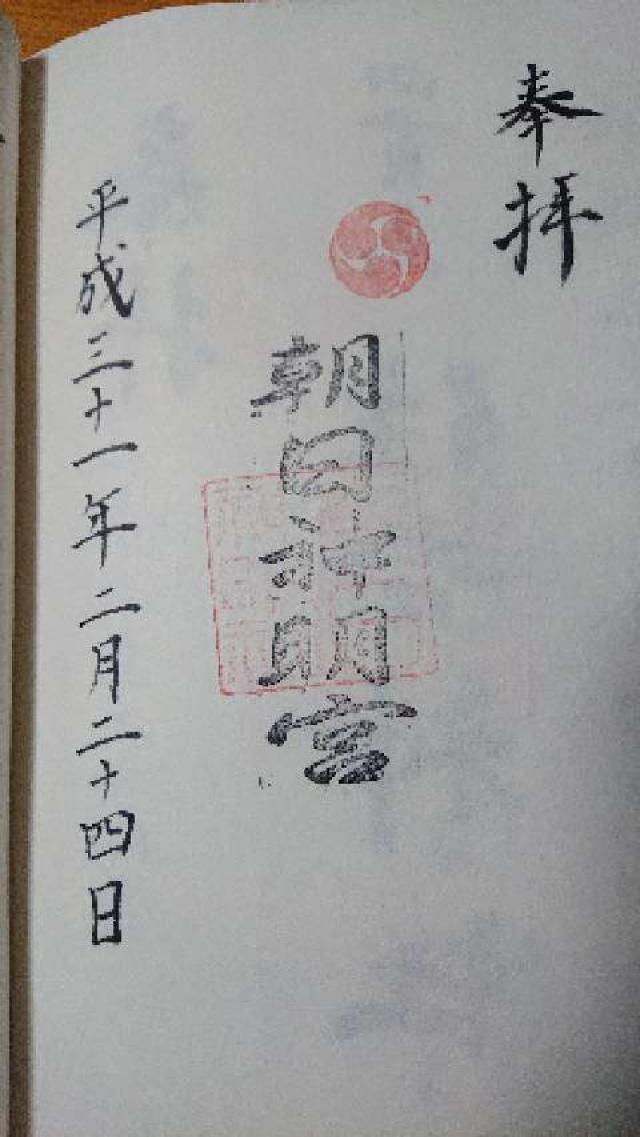 奉拝
朝日神明宮
平成三十一年二月二十四日